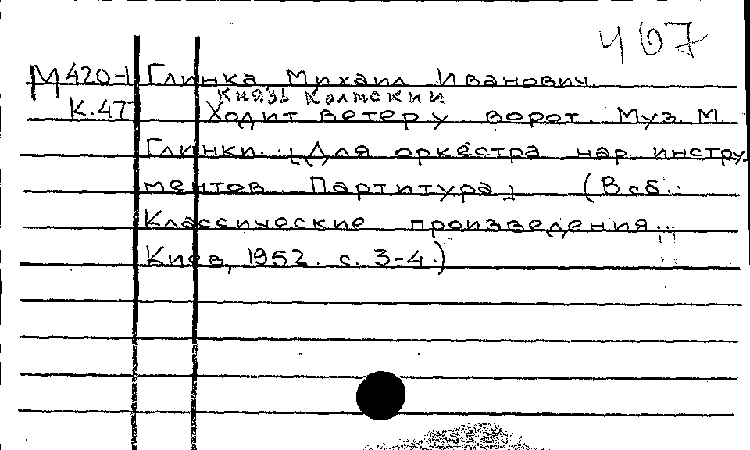 407
М 420-1 Глинка Михаил Иванович
Князь Холмский
К.477 Ходит ветер у ворот. Муз. М.
Глинки. [Для оркестра нар. инстру-
ментов. Партитура] (В сб.:
Классические произведения...
Киев, 1952. с. 3-4.)